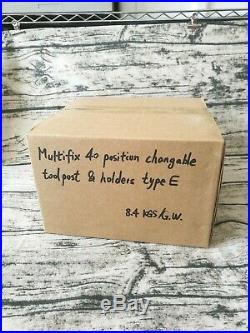 Multifix 40 position changable
toolpost & holders type E
8.4 KGS/G.W.